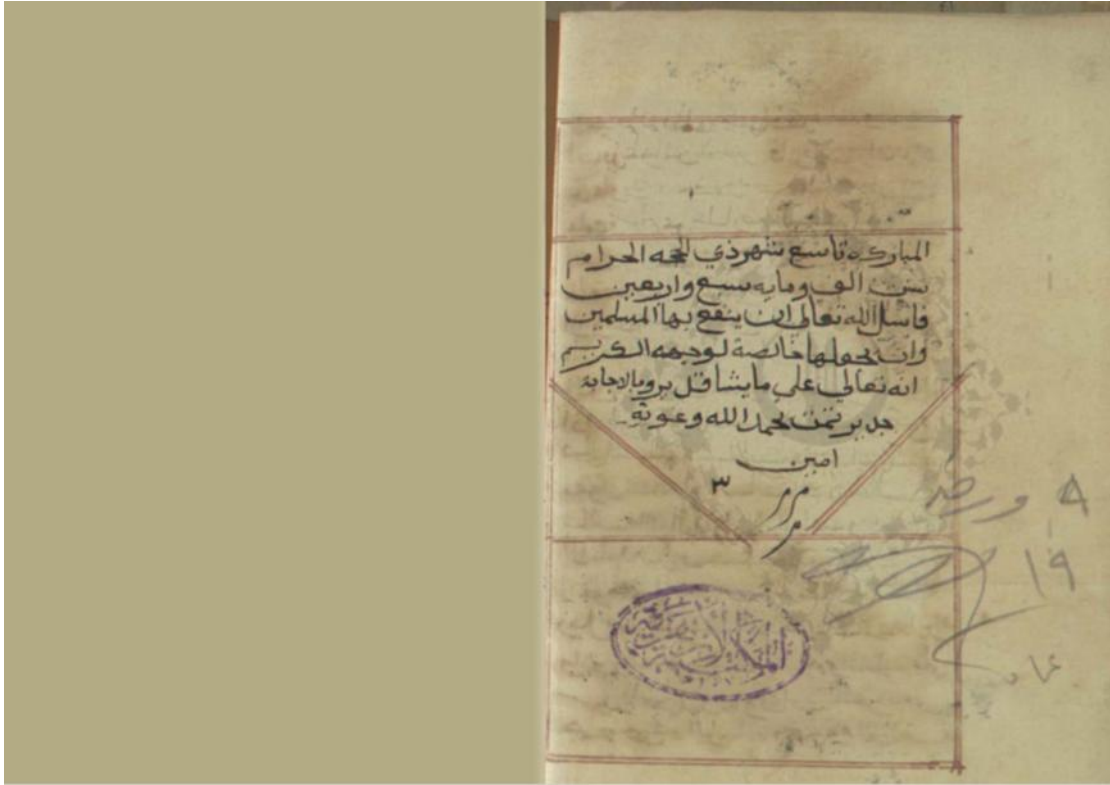 المباركه تاسع شهر ذي الحجه الحرام
سنت الف ومايه سبع واربعين
فاسل الله تعالي ان ينفع بها المسلمين
وان يجعلها خالصة لوجهه الكريم
انه تعالي علي ما يشا قدير وبالاجابة
جدير تمت بحمد الله وعونه
امين
م م م ٣
٨ ورقه
١٩
المكتبة الازهرية